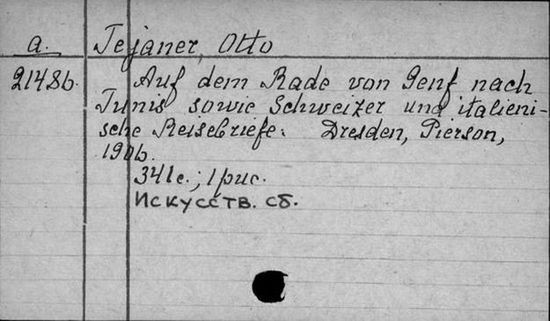 a. Tejaner, Otto
21486. Auf dem Rade von Genf nach
Tunis sowie Schweizer und italieni-
sche Reisebriefe. Dresden, Pierson,
1906.
341 с.; 1 рис.
Искусств. сб.